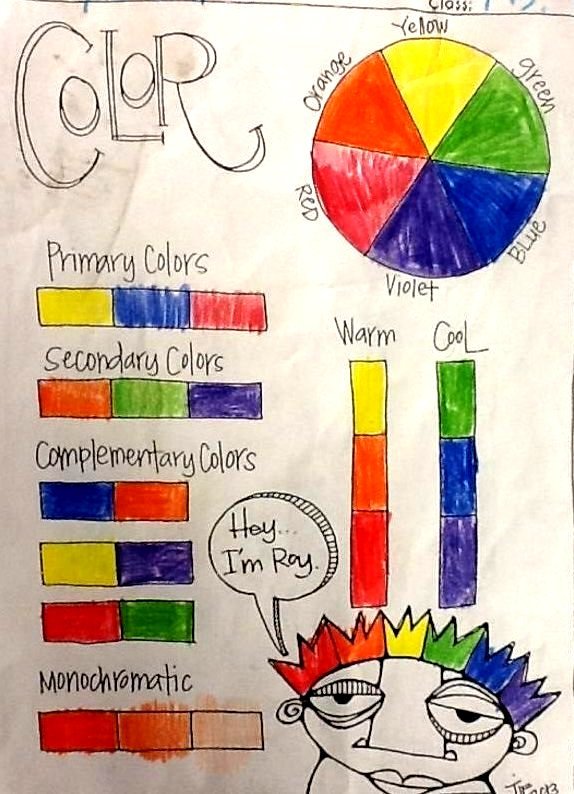 Class:
COLOR
Yellow
Orange
green
Red
Blue
Violet
Primary Colors
Warm
Cool
Secondary Colors
Complementary Colors
Hey...
I'm Roy.
Monochromatic